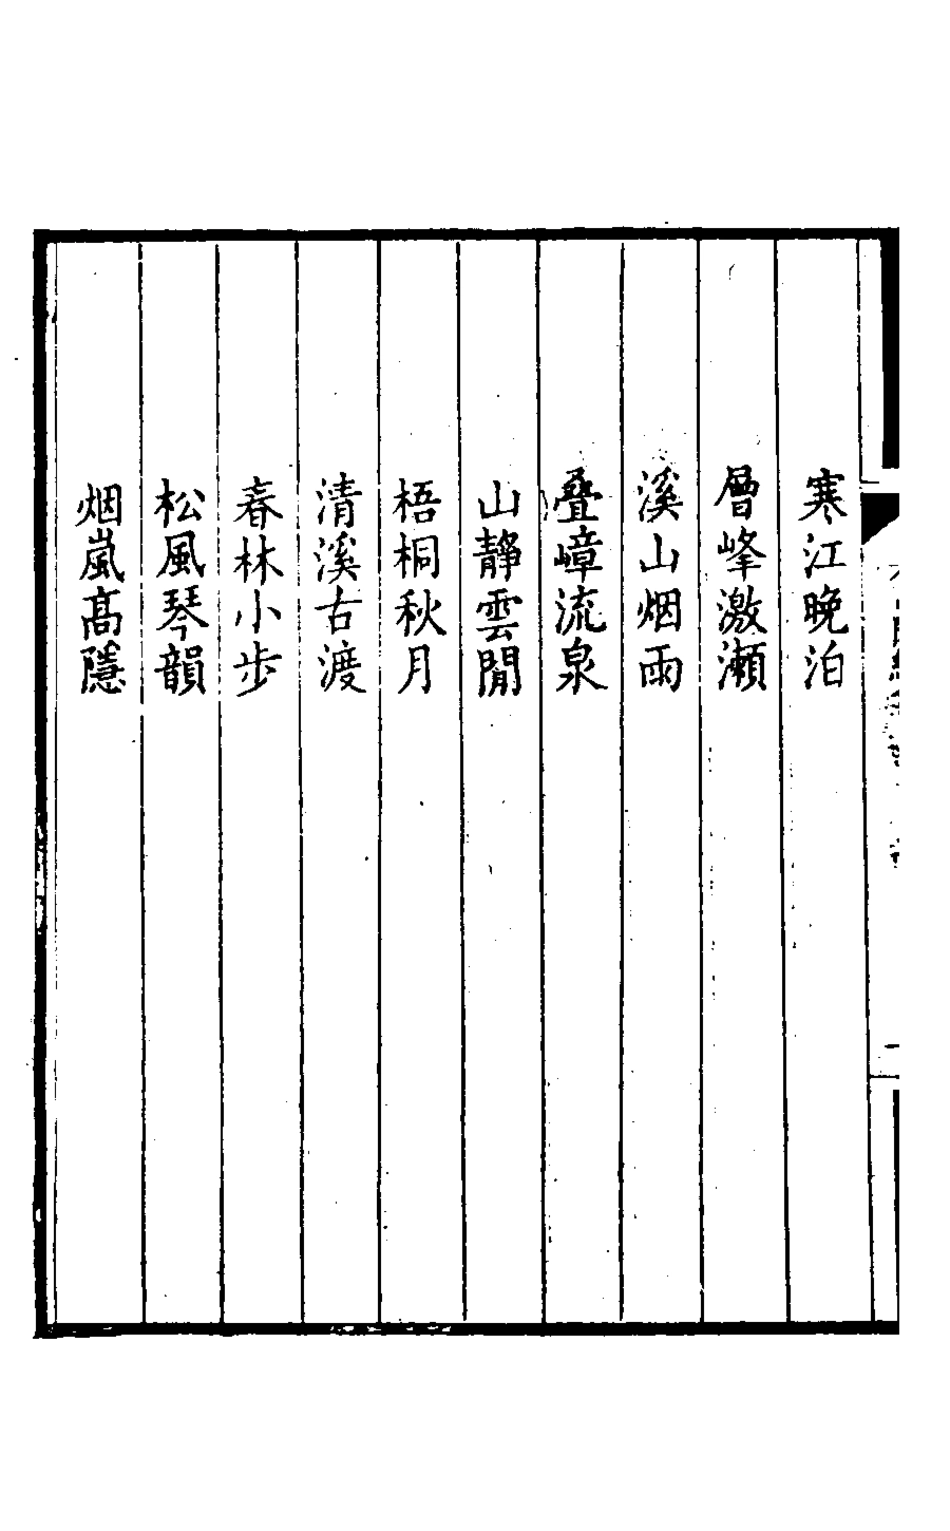 寒江晚泊
層峰激瀬
溪山烟雨
疊嶂流泉
山靜雲閒
梧桐秋月
清溪古渡
春林小步
松風琴韻
烟嵐髙隱